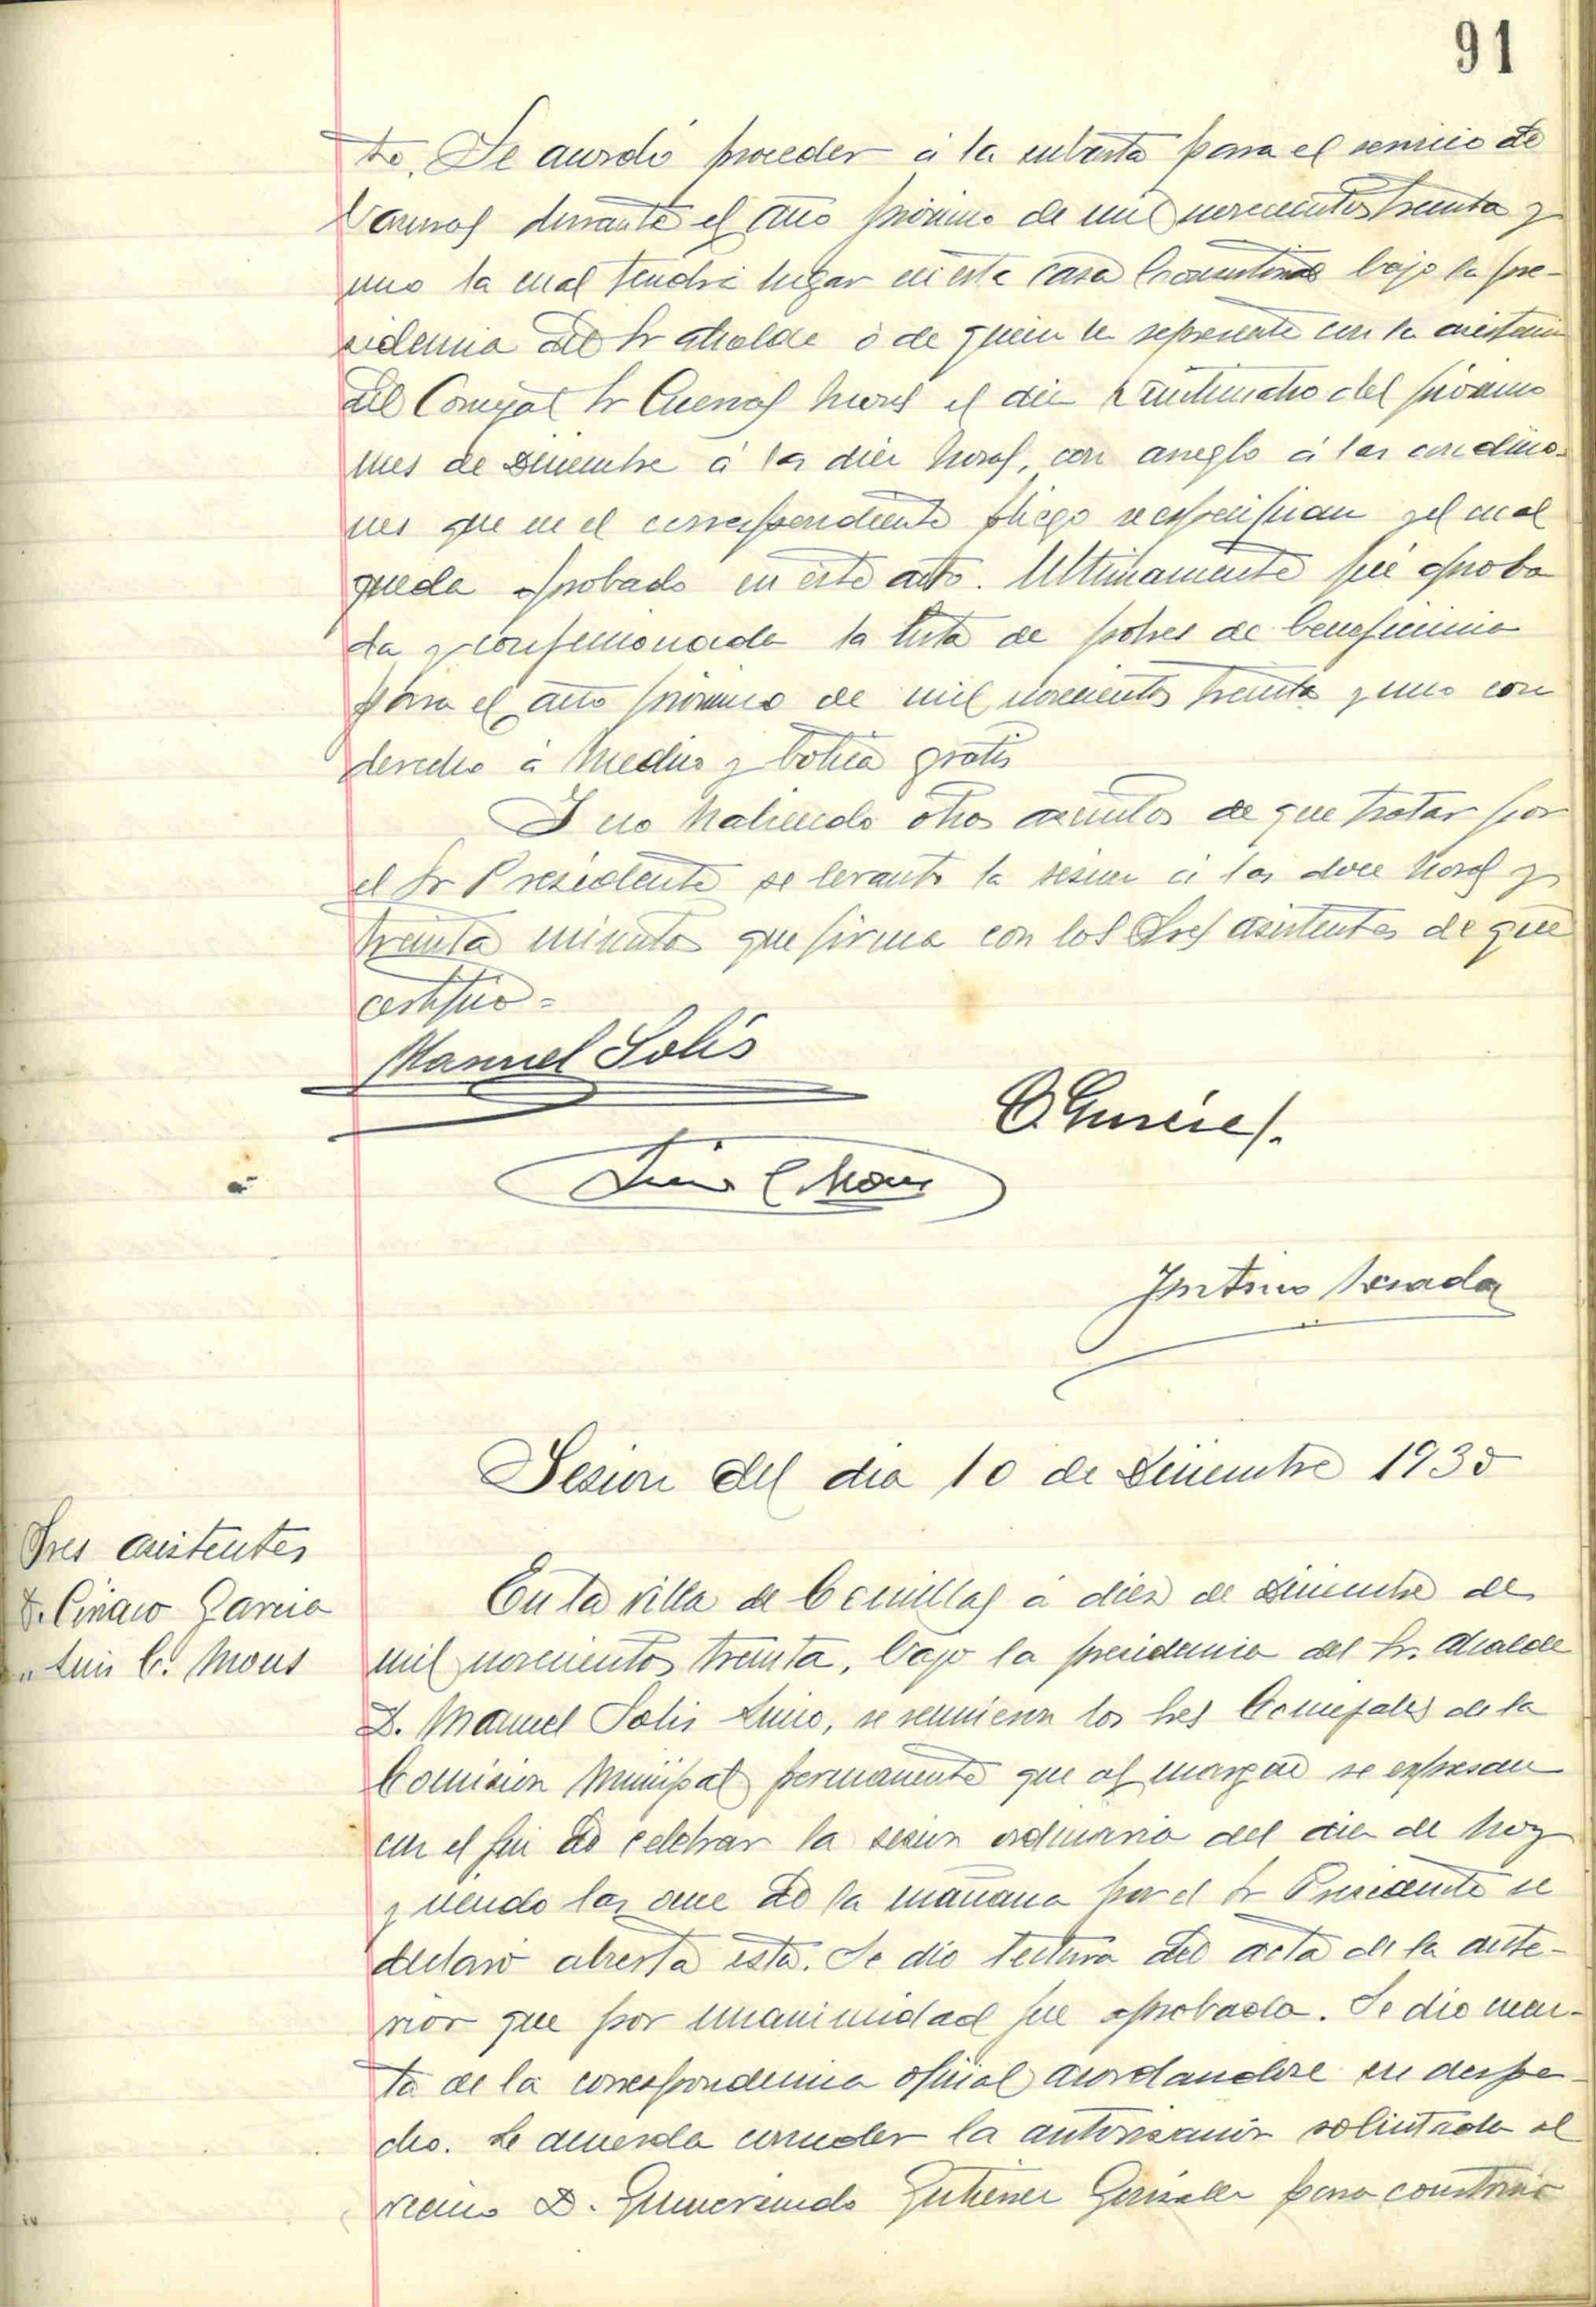 91
to. Se acordó proceder á la subasta para el servicio de
durante el año próximo de mil novecientos treinta y
uno la cual tendrá lugar en esta Casa Consistorial bajo la pre-
sidencia del Sr Alcalde ó de quien le represente con la asistencia
del Concejal Sr Cuevas Mons el dia veinticuatro del próximo
mes de Diciembre á las diez horas, con arreglo á las condicio-
nes que en el correspondiente pliego se especifican y el cual
queda aprobado en este acto. Ultimamente fué aproba
da y confeccionada la lista de pobres de beneficencia
para el año próximo de mil novecientos treinta y uno con
derecho á Medico y botica gratis
Y no habiendo otros asuntos de que tratar por
el Sr Presidente se levantó la sesion á las doce horas y
treinta minutos que firma con los Sres asistentes de que
certifico =
Manuel Solís
Luis C Mons
Sesion del dia 10 de Diciembre 1930
Sres asistentes
D. Ciriaco Garcia
" Luis C. Mons
En la villa de Comillas á diez de Diciembre de
mil novecientos treinta, bajo la presidencia del Sr. Alcalde
D. Manuel Solis se reunieron los Sres Concejales de la
Comision Municipal permanente que al margen se expresan
con el fin de celebrar la sesion ordinaria del dia de hoy
y siendo las once de la mañana por el Sr Presidente se
declaró abierta esta. Se dió lectura del acta de la ante-
rior que por unanimidad fue aprobada. Se dio cuen-
ta de la correspondencia oficial acordandose su despa-
cho. Se acuerda conceder la autorización solicitada al
vecino D. Gumersindo Gutierrez Gonzalez para construir